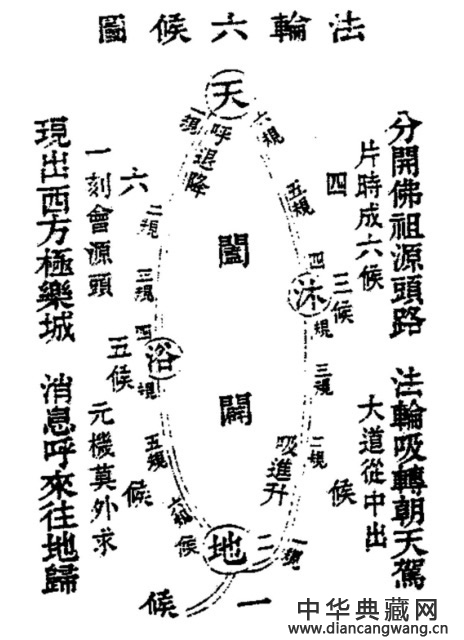 法輪六候圖
分開佛祖源頭路
法輪吸轉朝天駕
片時成六候
大道從中出
天
六規
五規
四
四
規
沐
三候
三規
二規
候
一規
吸進升
闔
闢
呼退降
一規
二規
三規
四
規
浴
五候
五規
六規
候
候
六
地
二
一
候
一刻會源頭
元機莫外求
現出西方極樂城
消息呼來往地歸
中华典藏网
www.diancangwang.cn